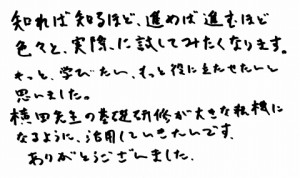 知れば知るほど、進めば進むほど
色々と、実際に試してみたくなります。
もっと、学びたい、もっと役に立たせたいと
思いました。
横田先生の基礎研修が大きな転機に
なるように、活用していきたいです。
ありがとうございました。